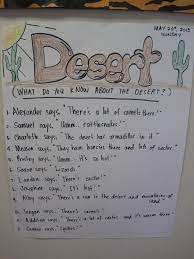 MAY 20th, 2015
Desert
(WHAT DO YOU KNOW ABOUT THE DESERT?)
1. Alexander says, "There's a lot of camels there!"
2. Samuel says, "Umm.. rattlesnakes!"
3. Charlotte says, "The desert has armadillos in it."
4. Mason says, "They have and lots of cactus."
5. says, "Umm.. it's so hot!"
6. says, "Lizards."
7. Landon says, "There's cactus!"
8. says, "It's hot!"
9. says, "There's a sun in the desert and mountains of sand."
10. says, "There's camels."
11. Addison says, "There's a lot of cactus and it's warm there."
12. says, "Spiders."